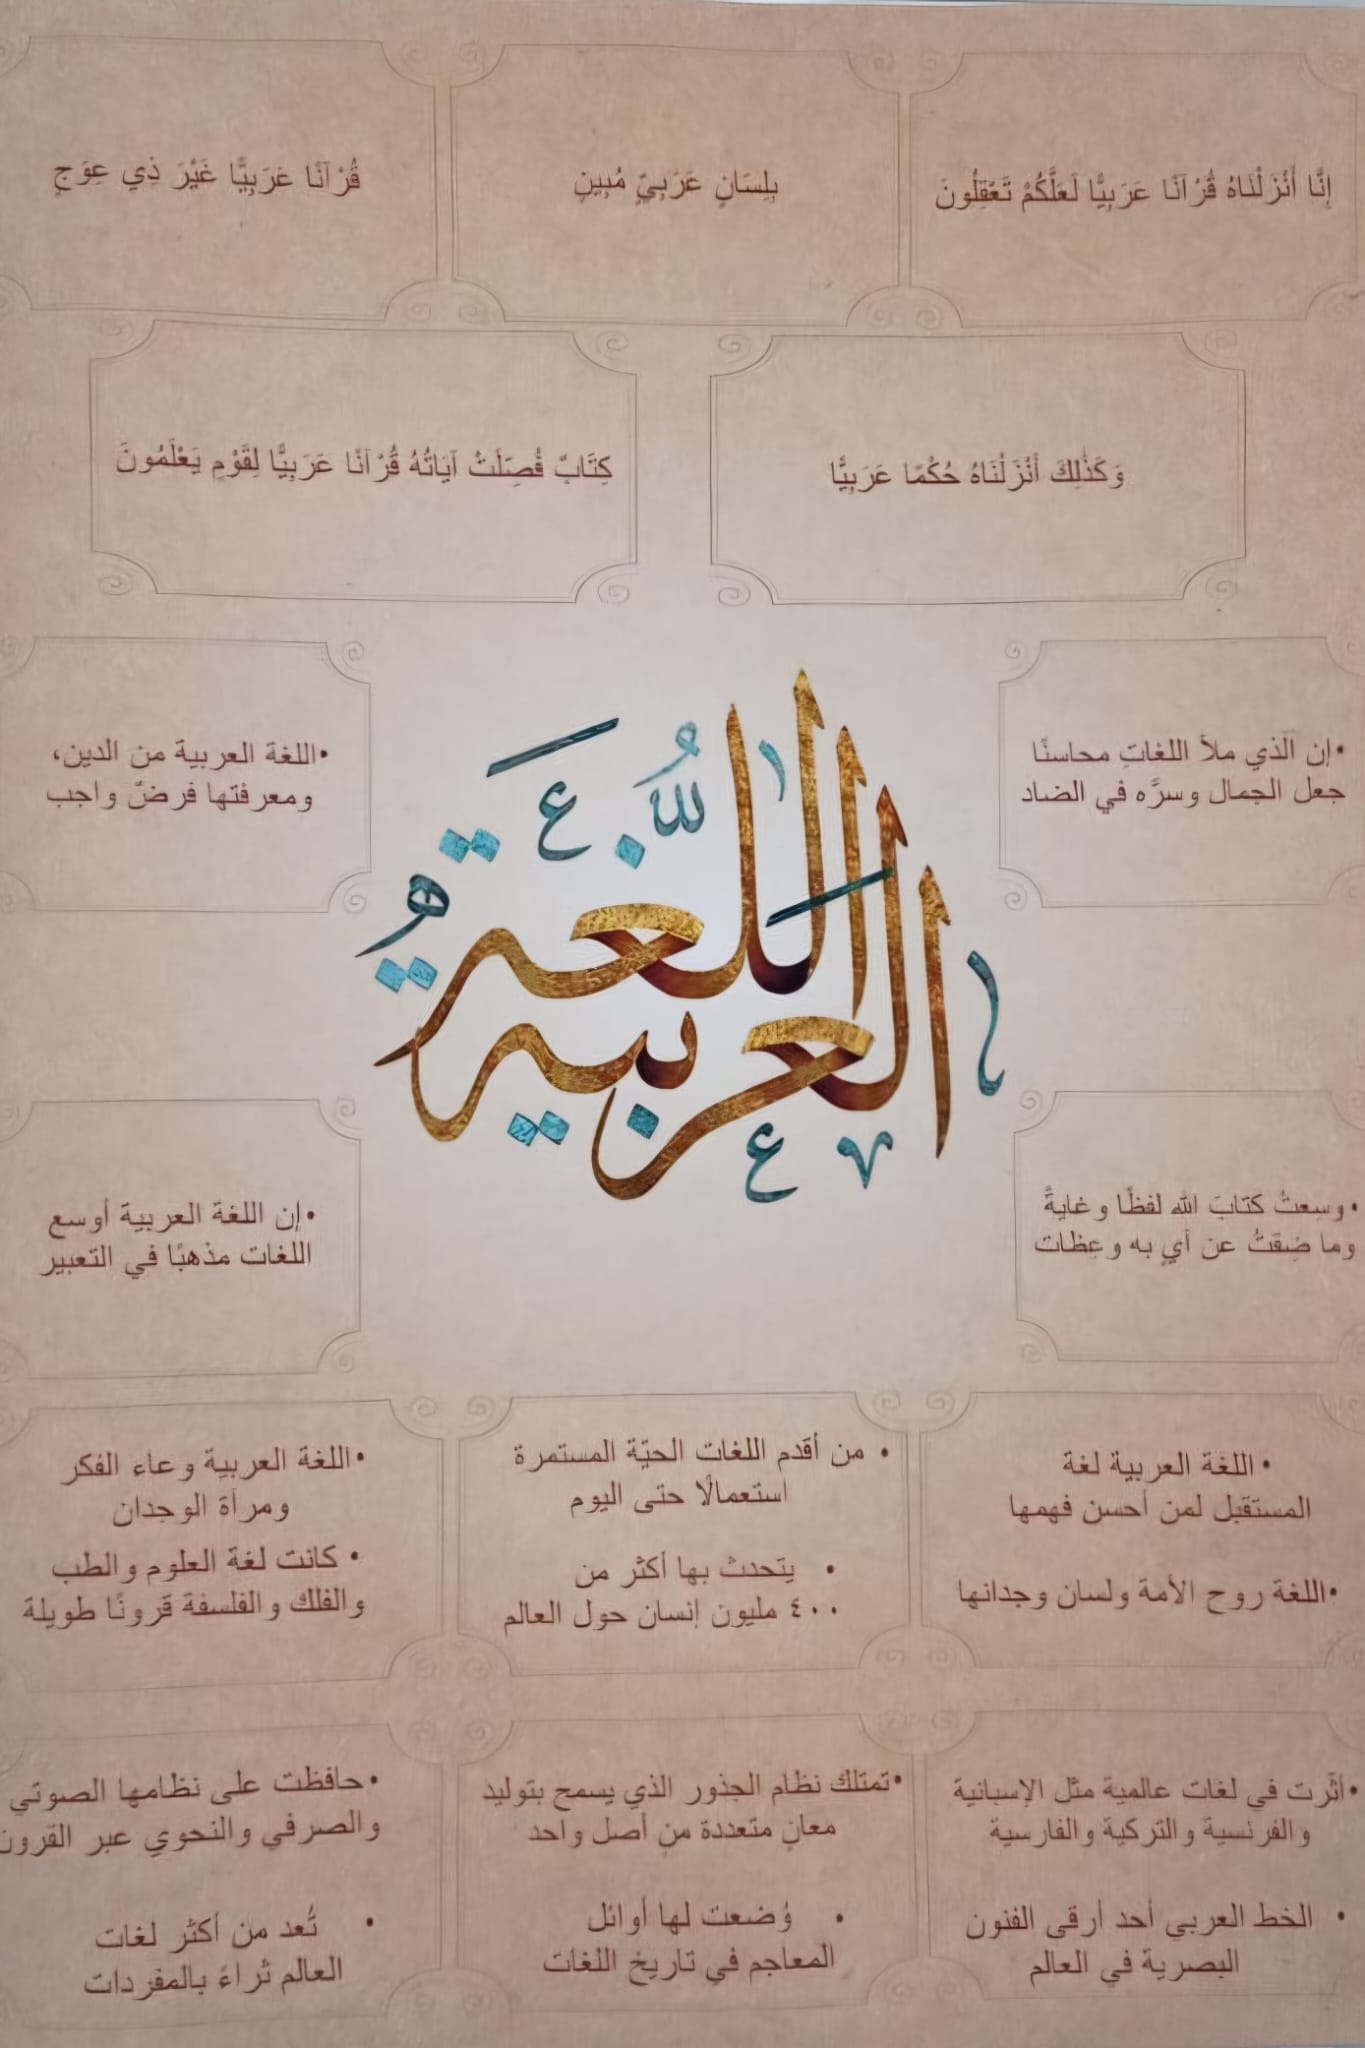 إِنَّا أَنْزَلْنَاهُ قُرْآنًا عَرَبِيًّا لَعَلَّكُمْ تَعْقِلُونَ
بِلِسَانٍ عَرَبِيٍّ مُبِينٍ
قُرْآنًا عَرَبِيًّا غَيْرَ ذِي عِوَجٍ
وَكَذَٰلِكَ أَنْزَلْنَاهُ حُكْمًا عَرَبِيًّا
كِتَابٌ فُصِّلَتْ آيَاتُهُ قُرْآنًا عَرَبِيًّا لِقَوْمٍ يَعْلَمُونَ
•إن الذي ملأ اللغاتِ محاسنًا
جعل الجمال وسرَّه في الضاد
•اللغة العربية من الدين،
ومعرفتها فرضٌ واجب
اللغة
العربية
•وسِعتُ كتابَ الله لفظًا وغايةً
وما ضِقتُ عن أيٍ به وعِظات
•إن اللغة العربية أوسع
اللغات مذهبًا في التعبير
•اللغة العربية لغة
المستقبل لمن أحسن فهمها
•اللغة روح الأمة ولسان وجدانها
• من أقدم اللغات الحيّة المستمرة
استعمالًا حتى اليوم
• يتحدث بها أكثر من
٤٠٠ مليون إنسان حول العالم
•اللغة العربية وعاء الفكر
ومرآة الوجدان
• كانت لغة العلوم والطب
والفلك والفلسفة قرونًا طويلة
•أثّرت في لغات عالمية مثل الإسبانية
والفرنسية والتركية والفارسية
• الخط العربي أحد أرقى الفنون
البصرية في العالم
•تمتلك نظام الجذور الذي يسمح بتوليد
معانٍ متعددة من أصل واحد
• وُضعت لها أوائل
المعاجم في تاريخ اللغات
•حافظت على نظامها الصوتي
والصرفي والنحوي عبر القرون
• تُعد من أكثر لغات
العالم ثراءً بالمفردات